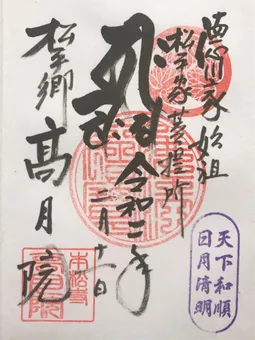 徳川家始祖
松平家菩提所
令和二年
二月十一日
松平郷
高月院
天下和順
日月清明